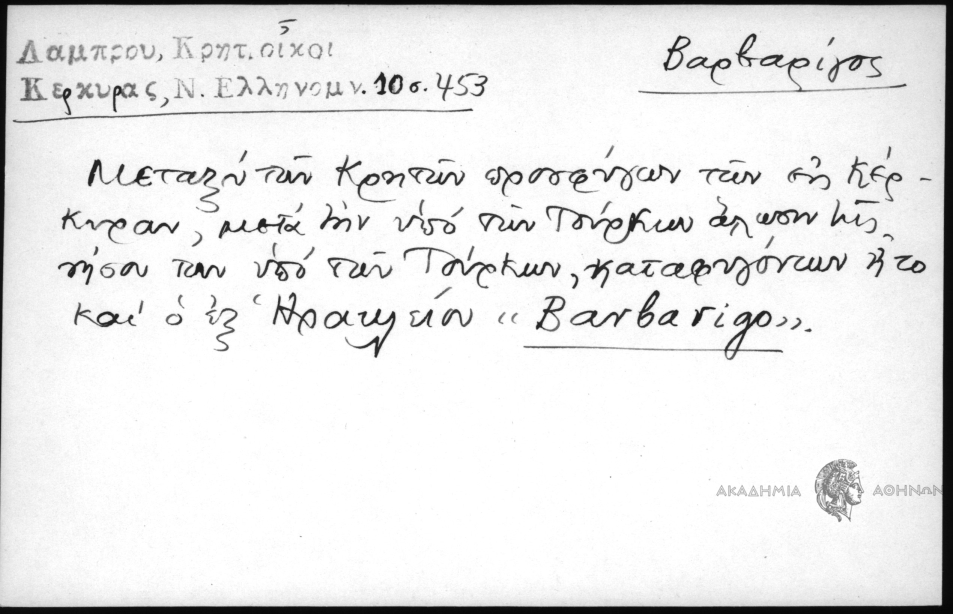 Λαμπρου, Κρητ. οἶκοι
Κερκυρας, Ν. Ελληνομν. 10 σ. 453
Βαρβαρίγος
Μεταξύ τῶν Κρητῶν προσφύγων τῶν εἰς Κέρ-
κυραν, μετά τήν ὑπό τῶν Τούρκων ἅλωσιν τῆς
νήσου των ὑπό τῶν Τούρκων, καταφυγόντων ἦτο
καί ὁ ἐξ Ἡρακλείου "Barbarigo".
ΑΚΑΔΗΜΙΑ ΑΘΗΝΩΝ